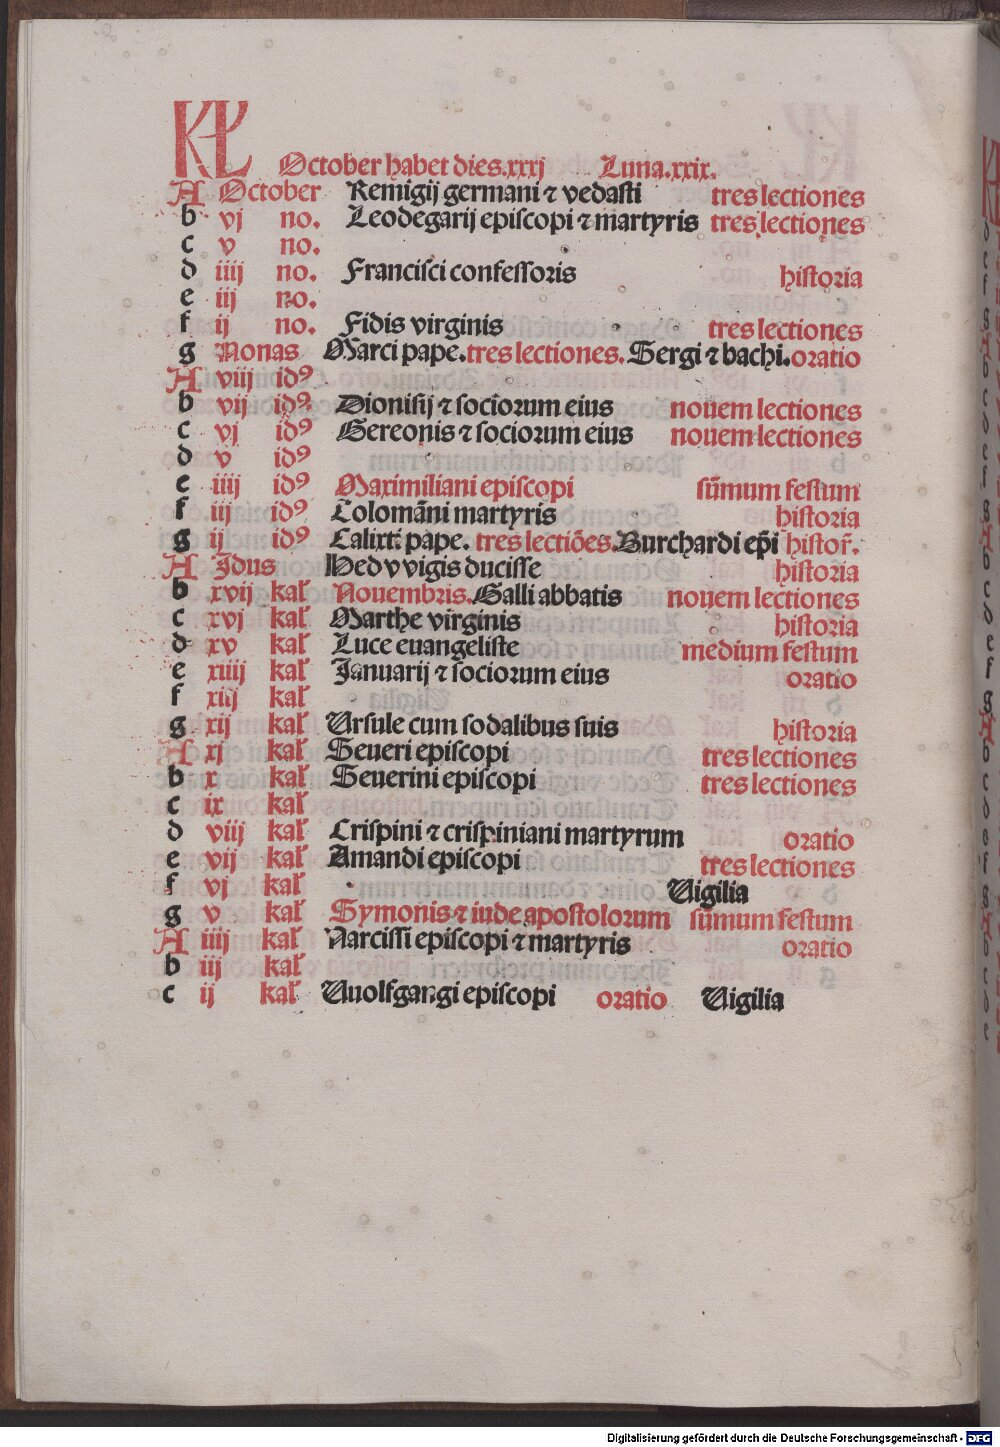 KL October habet dies.xxxj Luna.xxix.
A October Remigij germani ⁊ vedasti tres lectiones
b vj no. Leodegarij episcopi ⁊ martyris tres lectiones
c v no.
d iiij no. Francisci confessoris historia
e iij no.
f ij no. Fidis virginis tres lectiones
g Nonas Marci pape. tres lectiones. Sergi ⁊ bachi. oratio
A viij idꝰ
b vij idꝰ Dionisij ⁊ sociorum eius nouem lectiones
c vj idꝰ Gereonis ⁊ sociorum eius nouem lectiones
d v idꝰ
e iiij idꝰ Maximiliani episcopi sūmum festum
f iij idꝰ Colomāni martyris historia
g ij idꝰ Calixti pape. tres lectiōes. Burchardi ep̄i histor̄.
A Idus Hedvvigis ducisse historia
b xvij kał Nouembris. Galli abbatis nouem lectiones
c xvj kał Marthe virginis historia
d xv kał Luce euangeliste medium festum
e xiiij kał Januarij ⁊ sociorum eius oratio
f xiij kał
g xij kał Ursule cum sodalibus suis historia
A xj kał Seueri episcopi tres lectiones
b x kał Seuerini episcopi tres lectiones
c ix kał
d viij kał Crispini ⁊ crispiniani martyrum oratio
e vij kał Amandi episcopi tres lectiones
f vj kał Vigilia
g v kał Symonis ⁊ iude apostolorum sūmum festum
A iiij kał Narcissi episcopi ⁊ martyris oratio
b iij kał
c ij kał Vuolfgangi episcopi oratio Vigilia
Digitalisierung gefördert durch die Deutsche Forschungsgemeinschaft - DFG